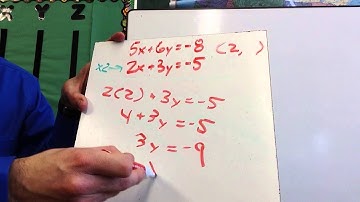 Y Z
5x+6y=-8 (2, )
x2→ 2x+3y=-5
2(2)+3y=-5
4+3y=-5
3y=-9